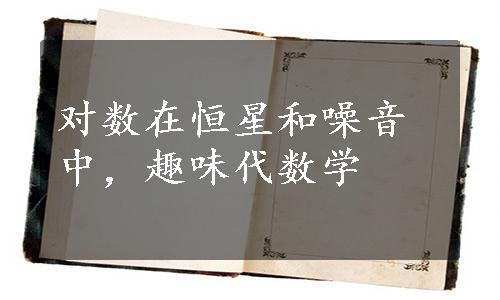 对数在恒星和噪音
中，趣味代数学